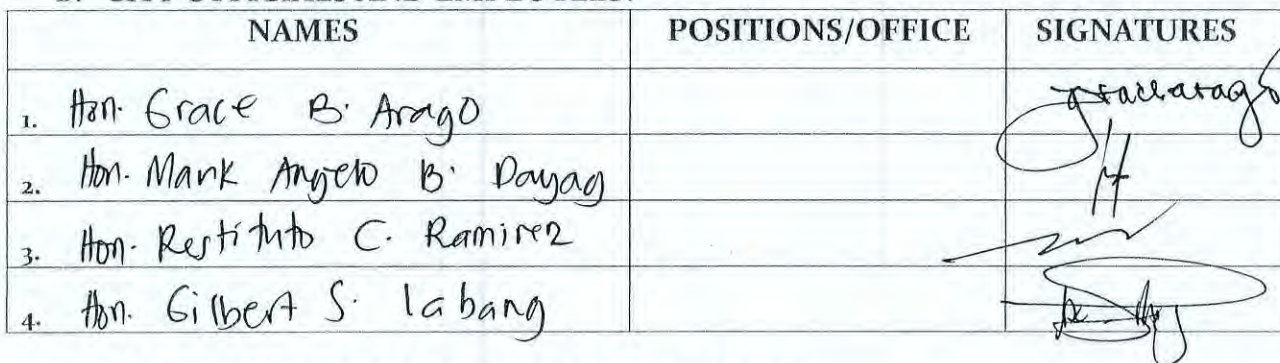 NAMES POSITIONS/OFFICE SIGNATURES
1. Hon. Grace B. Arago
2. Hon. Mark Angelo B. Dayag
3. Hon. Restituto C. Ramirez
4. Hon. Gilbert S. Labang